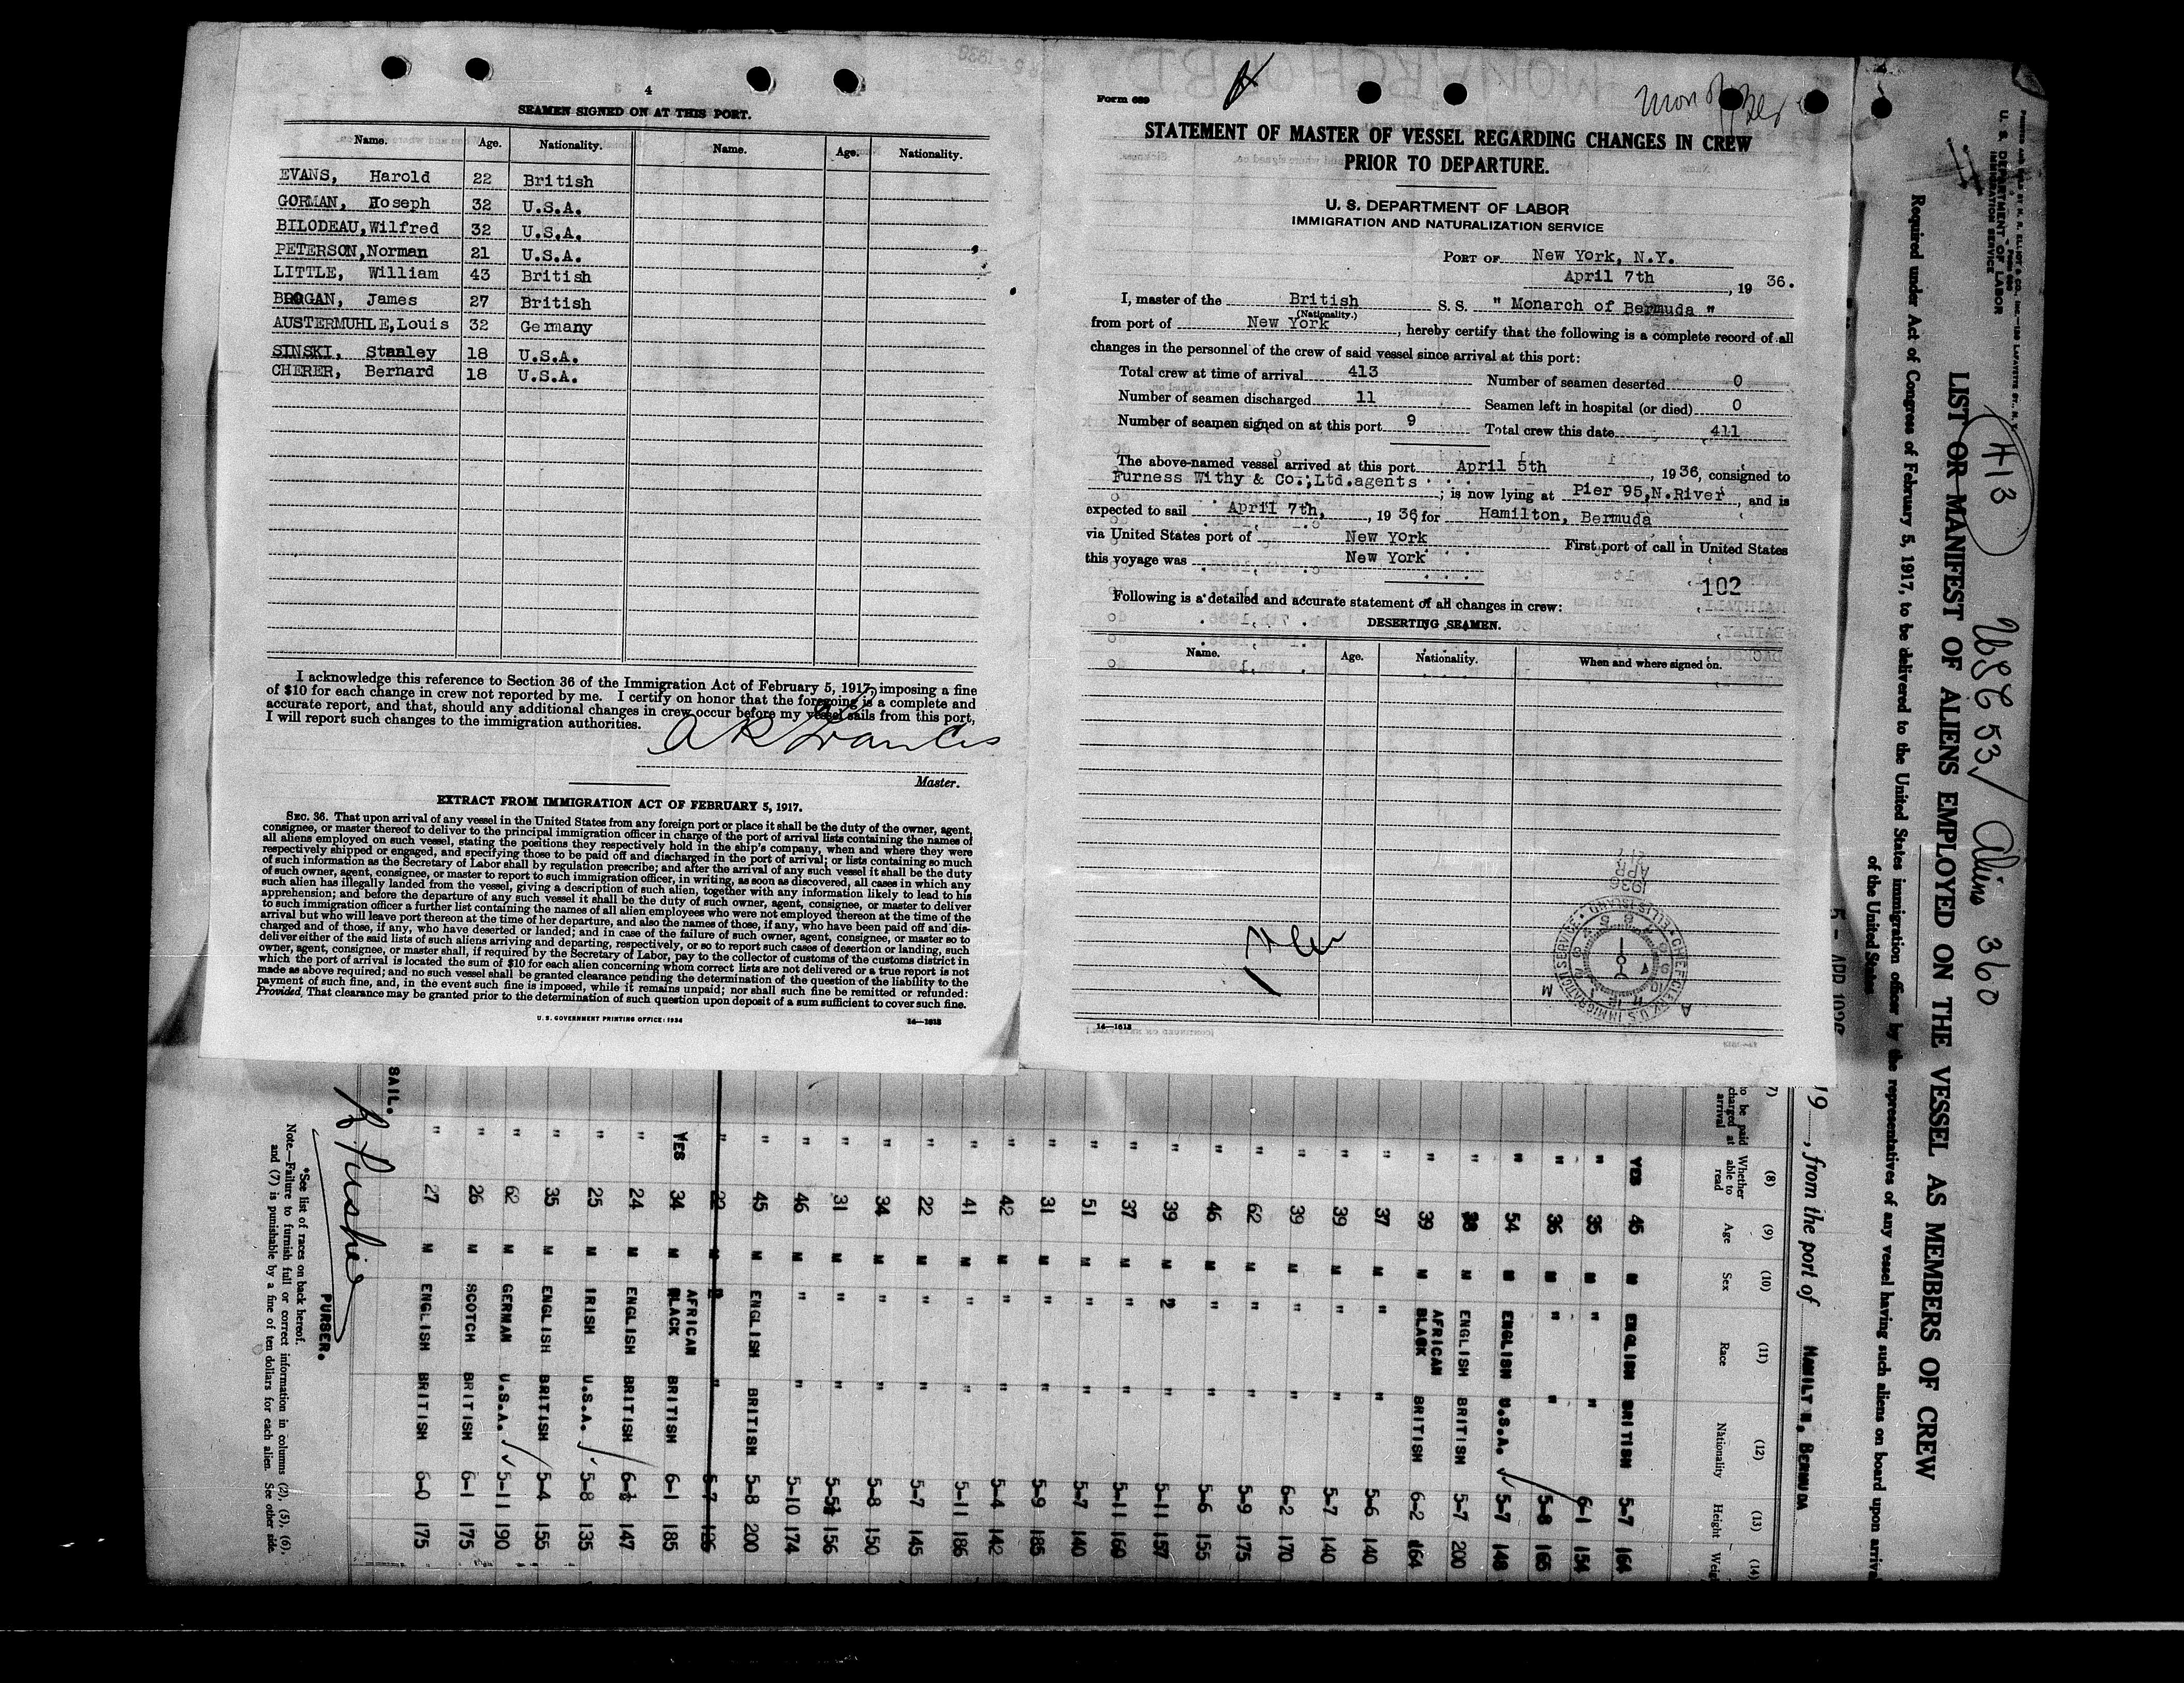 4
SEAMEN SIGNED ON AT THIS PORT.
Name. Age. Nationality. Name. Age. Nationality.
EVANS, Harold 22 British
GORMAN, Hoseph 32 U.S.A.
BILODEAU, Wilfred 32 U.S.A.
PETERSON, Norman 21 U.S.A.
LITTLE, William 43 British
BROGAN, James 27 British
AUSTERMUHLE, Louis 32 Germany
SINSKI, Stanley 18 U.S.A.
CHERER, Bernard 18 U.S.A.
I acknowledge this reference to Section 36 of the Immigration Act of February 5, 1917, imposing a fine
of $10 for each change in crew not reported by me. I certify on honor that the foregoing is a complete and
accurate report, and that, should any additional changes in crew occur before my vessel sails from this port,
I will report such changes to the immigration authorities.
Master.
EXTRACT FROM IMMIGRATION ACT OF FEBRUARY 5, 1917.
SEC. 36. That upon arrival of any vessel in the United States from any foreign port or place it shall be the duty of the owner, agent,
consignee, or master thereof to deliver to the principal immigration officer in charge of the port of arrival lists containing the names of
all aliens employed on such vessel, stating the positions they respectively hold in the ship's company, when and where they were
respectively shipped or engaged, and specifying those to be paid off and discharged in the port of arrival; or lists containing so much
of such information as the Secretary of Labor shall by regulation prescribe; and after the arrival of any such vessel it shall be the duty
of such owner, agent, consignee, or master to report to such immigration officer, in writing, as soon as discovered, all cases in which any
such alien has illegally landed from the vessel, giving a description of such alien, together with any information likely to lead to his
apprehension; and before the departure of any such vessel it shall be the duty of such owner, agent, consignee, or master to deliver
to such immigration officer a further list containing the names of all alien employees who were not employed thereon at the time of the
arrival but who will leave port thereon at the time of her departure, and also the names of those, if any, who have been paid off and dis-
charged and of those, if any, who have deserted or landed; and in case of the failure of such owner, agent, consignee, or master so to
deliver either of the said lists of such aliens arriving and departing, respectively, or so to report such cases of desertion or landing, such
owner, agent, consignee, or master shall, if required by the Secretary of Labor, pay to the collector of customs of the customs district in
which the port of arrival is located the sum of $10 for each alien concerning whom correct lists are not delivered or a true report is not
made as above required; and no such vessel shall be granted clearance pending the determination of the question of the liability to the
payment of such fine, and, in the event such fine is imposed, while it remains unpaid; nor shall such fine be remitted or refunded:
Provided, That clearance may be granted prior to the determination of such question upon deposit of a sum sufficient to cover such fine.
U. S. GOVERNMENT PRINTING OFFICE: 1934 14—1613
Form 689
STATEMENT OF MASTER OF VESSEL REGARDING CHANGES IN CREW
PRIOR TO DEPARTURE.
U. S. DEPARTMENT OF LABOR
IMMIGRATION AND NATURALIZATION SERVICE
PORT OF New York, N.Y.
April 7th, 1936.
I, master of the British S. S. " Monarch of Bermuda "
(Nationality.)
from port of New York, hereby certify that the following is a complete record of all
changes in the personnel of the crew of said vessel since arrival at this port:
Total crew at time of arrival 413 Number of seamen deserted 0
Number of seamen discharged 11 Seamen left in hospital (or died) 0
Number of seamen signed on at this port 9 Total crew this date 411
The above-named vessel arrived at this port April 5th, 1936, consigned to
Furness Withy & Co., Ltd. agents; is now lying at Pier 95, N. River, and is
expected to sail April 7th, 1936, for Hamilton, Bermuda
via United States port of New York First port of call in United States
this voyage was New York
102
Following is a detailed and accurate statement of all changes in crew:
DESERTING SEAMEN.
Name. Age. Nationality. When and where signed on.
14—1613
U. S. DEPARTMENT OF LABOR
IMMIGRATION SERVICE
LIST OR MANIFEST OF ALIENS EMPLOYED ON THE VESSEL AS MEMBERS OF CREW
Required under Act of Congress of February 5, 1917, to be delivered to the United States immigration officer by the representatives of any vessel having such aliens on board upon arrival
of the United States
413
USC 53/ Aliens 360
19, from the port of HAMILTON, BERMUDA
(8) (9) (10) (11) (12) (13) (14)
Whether able to read Age Sex Race Nationality Height
YES 45 M ENGLISH BRITISH 5-7 164
" 35 M " " 6-1 154
" 36 M " " 5-8 165
" 54 M ENGLISH U.S.A. 5-7 148
" 38 M ENGLISH BRITISH 5-7 200
" 39 M AFRICAN BLACK BRITISH 6-2 164
" 37 M " " 5-6 140
" 39 M " " 5-7 140
" 39 M " " 6-2 170
" 62 M " " 5-9 175
" 46 M " " 5-6 155
" 39 M " " 5-11 157
" 37 M " " 5-11 160
" 51 M " " 5-7 140
" 31 M " " 5-9 185
" 42 M " " 5-4 142
" 41 M " " 5-11 186
" 22 M " " 5-7 145
" 34 M " " 5-8 150
" 31 M " " 5-5½ 156
" 46 M " " 5-10 174
" 45 M ENGLISH BRITISH 5-8 200
" 22 M " " 5-7 126
YES 34 M AFRICAN BLACK BRITISH 6-1 185
" 24 M ENGLISH BRITISH 147
" 25 M IRISH U.S.A. 5-8 135
" 35 M ENGLISH BRITISH 5-4 155
" 62 M GERMAN U.S.A. 5-11 190
" 26 M SCOTCH BRITISH 6-1 175
" 27 M ENGLISH BRITISH 6-0 175
SAIL.
PURSER.
*See list of races on back hereof.
Note.—Failure to furnish full or correct information in columns (2), (5), (6),
and (7) is punishable by a fine of ten dollars for each alien. See other side.